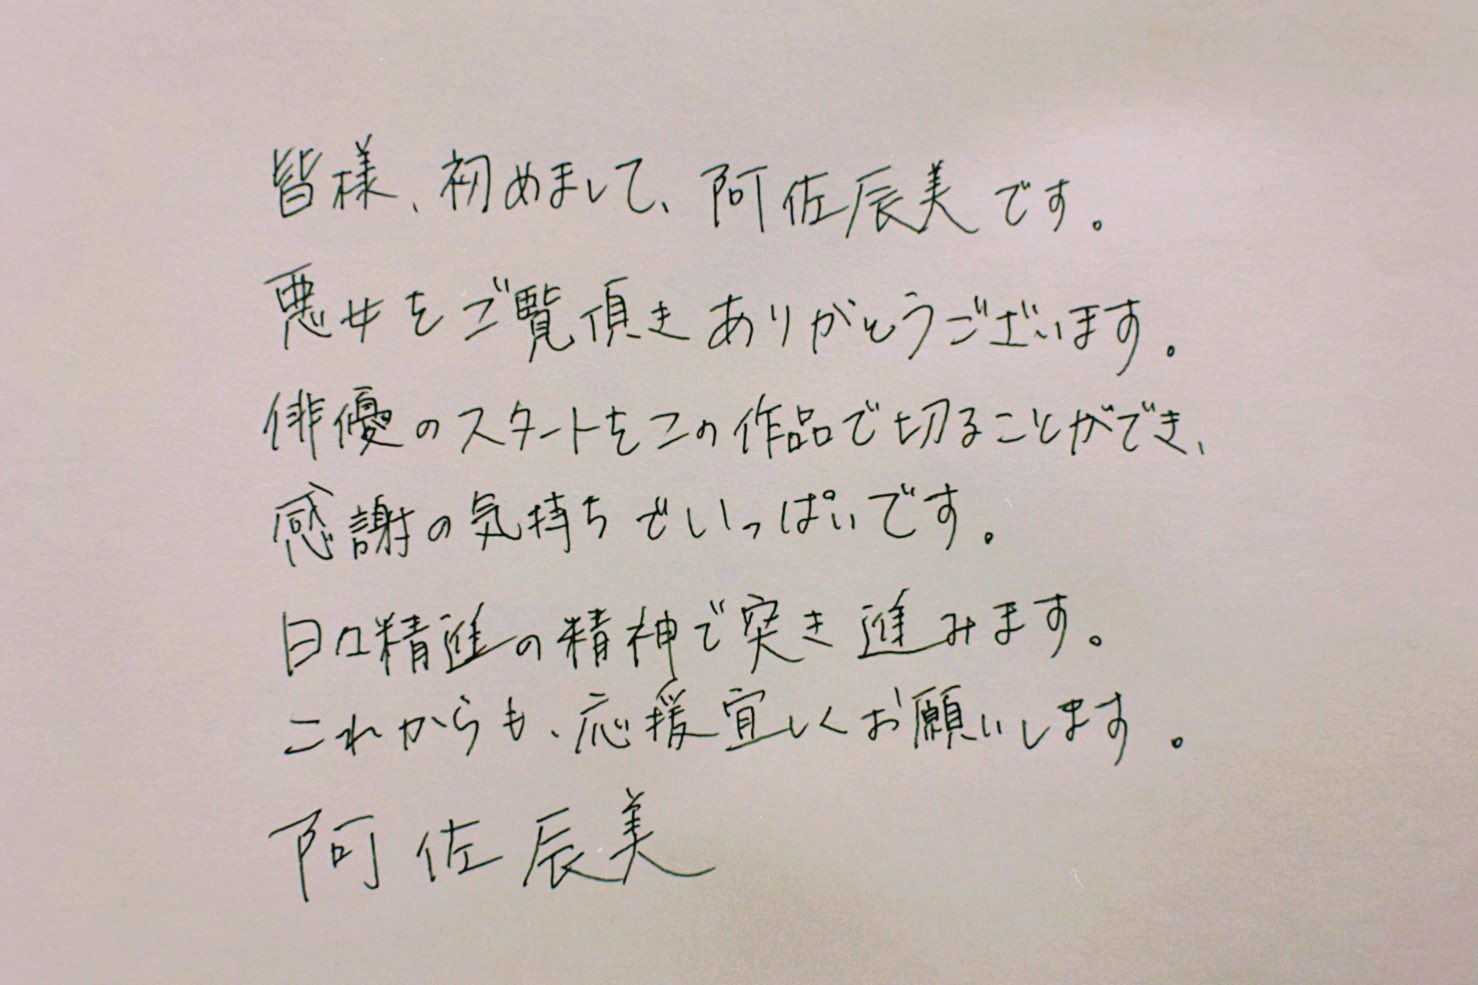 皆様、初めまして、阿佐辰美です。
悪女をご覧頂きありがとうございます。
俳優のスタートをこの作品で切ることができ、
感謝の気持ちでいっぱいです。
日々精進の精神で突き進みます。
これからも、応援宜しくお願いします。
阿佐辰美